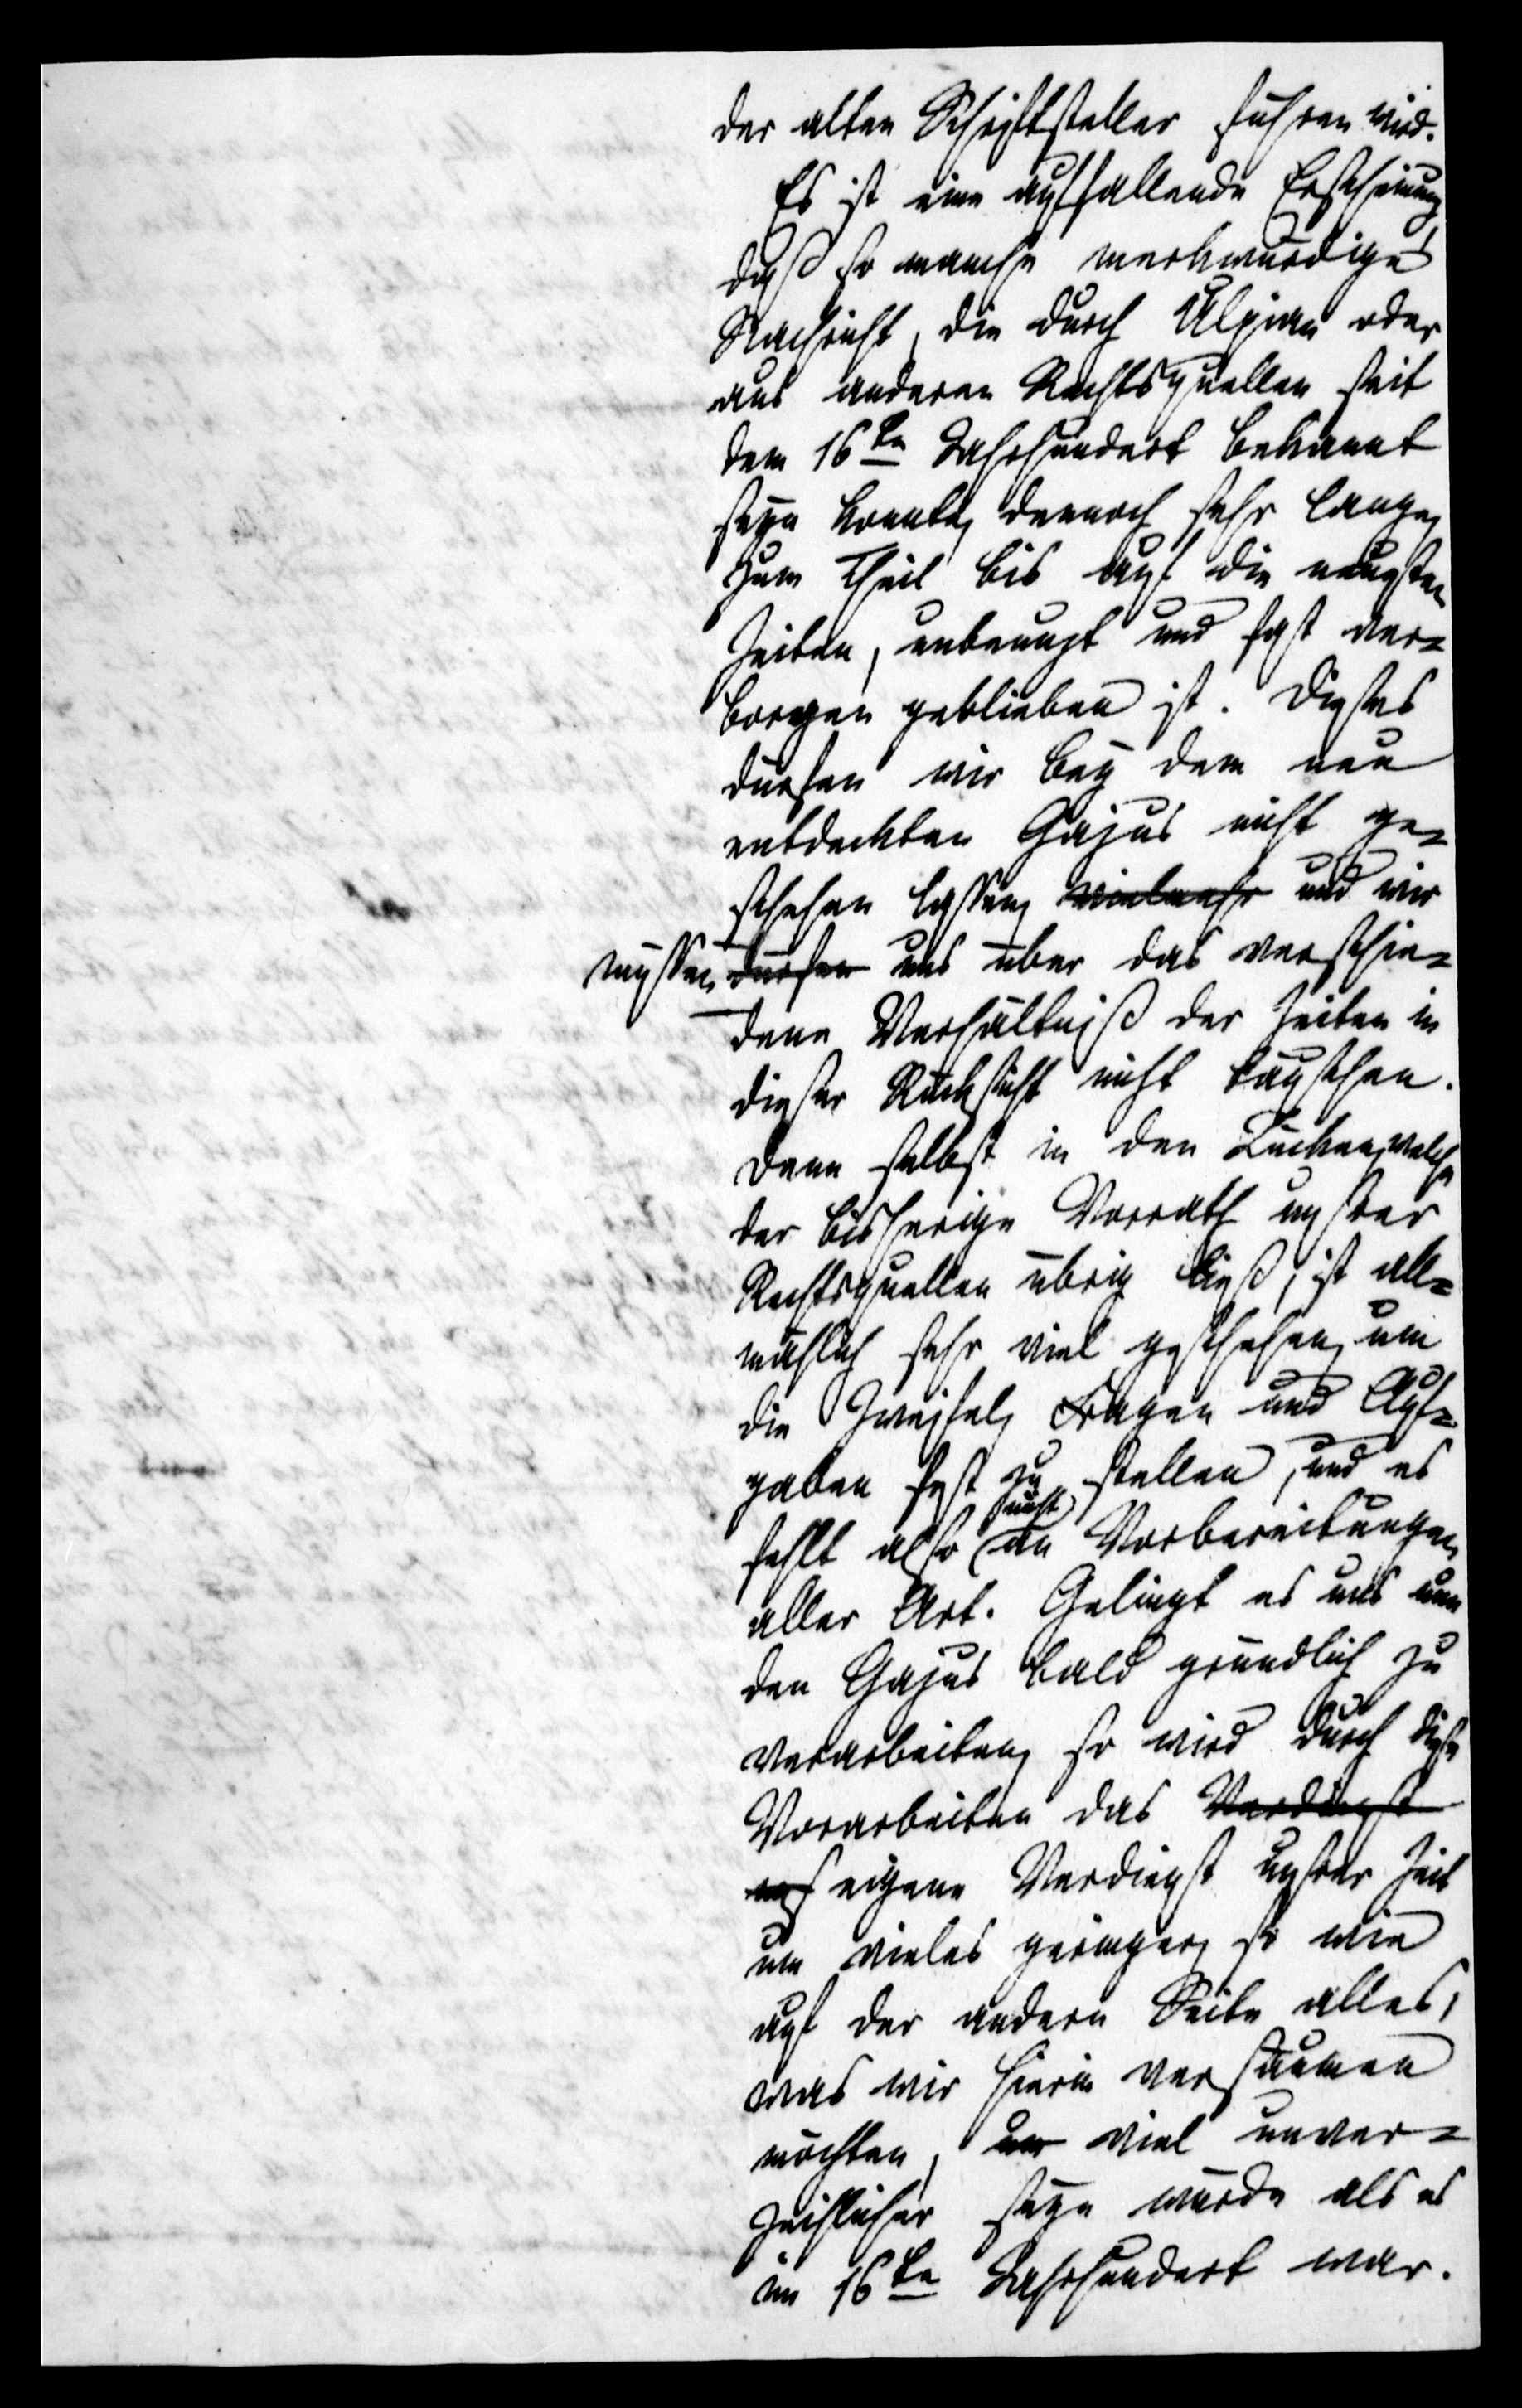 der alten Schriftsteller führen wird.
Es ist eine auffallende Erscheinung
daß so manche merkwürdige
Nachricht, die durch Ulpian oder
aus anderen Rechtsquellen seit
dem 16ten Jahrhundert bekannt
seyn konnte, dennoch sehr lange,
zum Theil bis auf die neusten
Zeiten, unbenuzt und fast ver-
borgen geblieben ist. Dieses
dürfen wir bey dem neu
entdeckten Gajus nicht ge-
schehen lassen, vielmehr und wir
müssen dürfen uns über das verschie-
dene Verhältniß der Zeiten in
dieser Rücksicht nicht täuschen.
Denn selbst in den Lücken, welche
der bisherige Vorrath unsrer
Rechtsquellen übrig ließ, ist all-
mählich sehr viel geschehen, um
die Zweifel, Fragen und Auf-
gaben fest zu stellen, und es
fehlt also nicht an Vorbereitungen
aller Art. Gelingt es uns nun
den Gajus bald gründlich zu
verarbeiten, so wird durch diese
Vorarbeiten das Verdienst
eigene Verdienst unsrer Zeit
um vieles geringer, so wie
auf der andern Seite alles,
was wir hierin versäumen
möchten, um viel unver-
zeihlicher seyn würde als es
im 16ten Jahrhundert war.